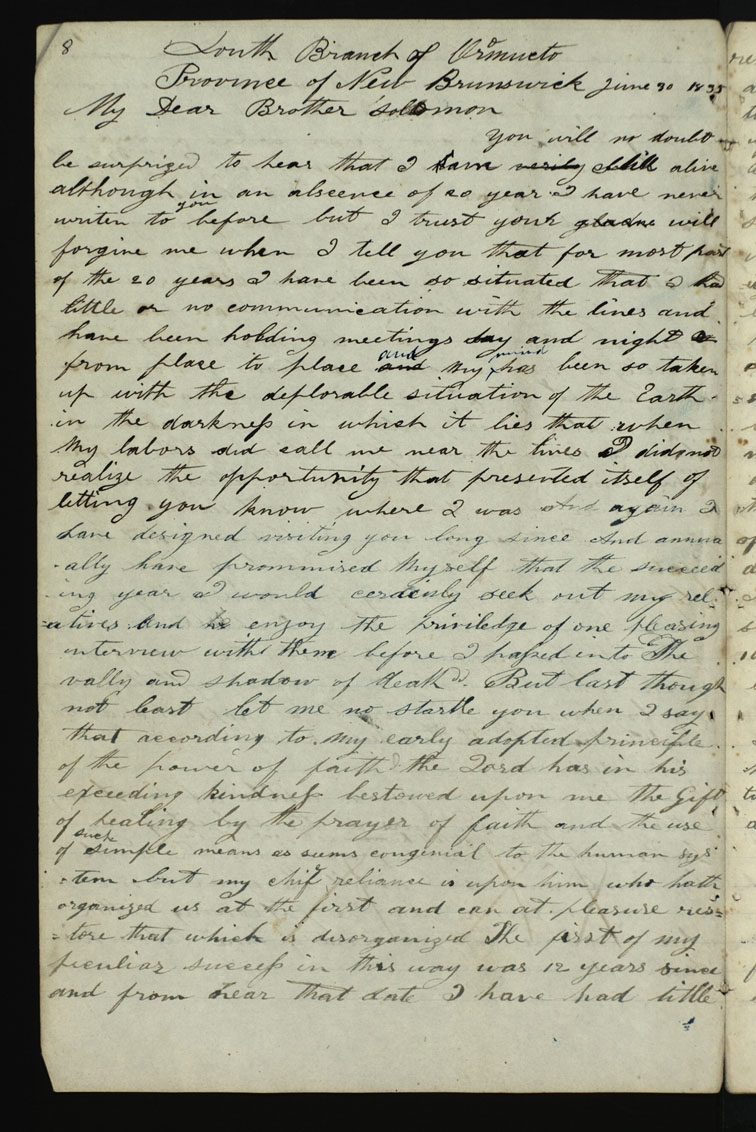 8
South Branch of Ormucto
Province of New Brunswick June 30 1835
My Dear Brother Solomon
You will no doubt
be surprized to hear that I am still alive
although in an abscence of 20 year I have never
you
writen to before but I trust your will
forgive me when I tell you that for most part
of the 20 years I have been so situated that I had
little or no communication with the lines and
have been holding meetings day and night
and mind
from place to place and My has been so taken
up with the deplorable situation of the Earth
in the darkness in which it lies that when
My labors did call me near the lines I did not
realize the opportunity that presented itself of
letting you know where I was And again I
have designed visiting you long since And annu
-ally have prommised Myself that the succeed
ing year I would certainly seek out my rel
=atives And enjoy the priviledge of one pleasing
interview with them before I passed into The
vally and shadow of death But last though
not least let me no startle you when I say
that according to my early adopted principle
of the power of faith the Lord has in his
exceeding kindness bestowed upon me the Gift
of healing by the prayer of faith and the use
such
of simple means as seems congenial to the human sys
=tem but my chif reliance is upon him who hath
organized us at the first and can at pleasure res=
=tore that which is disorganized The first of my
peculiar success in this way was 12 years since
and from near that date I have had little